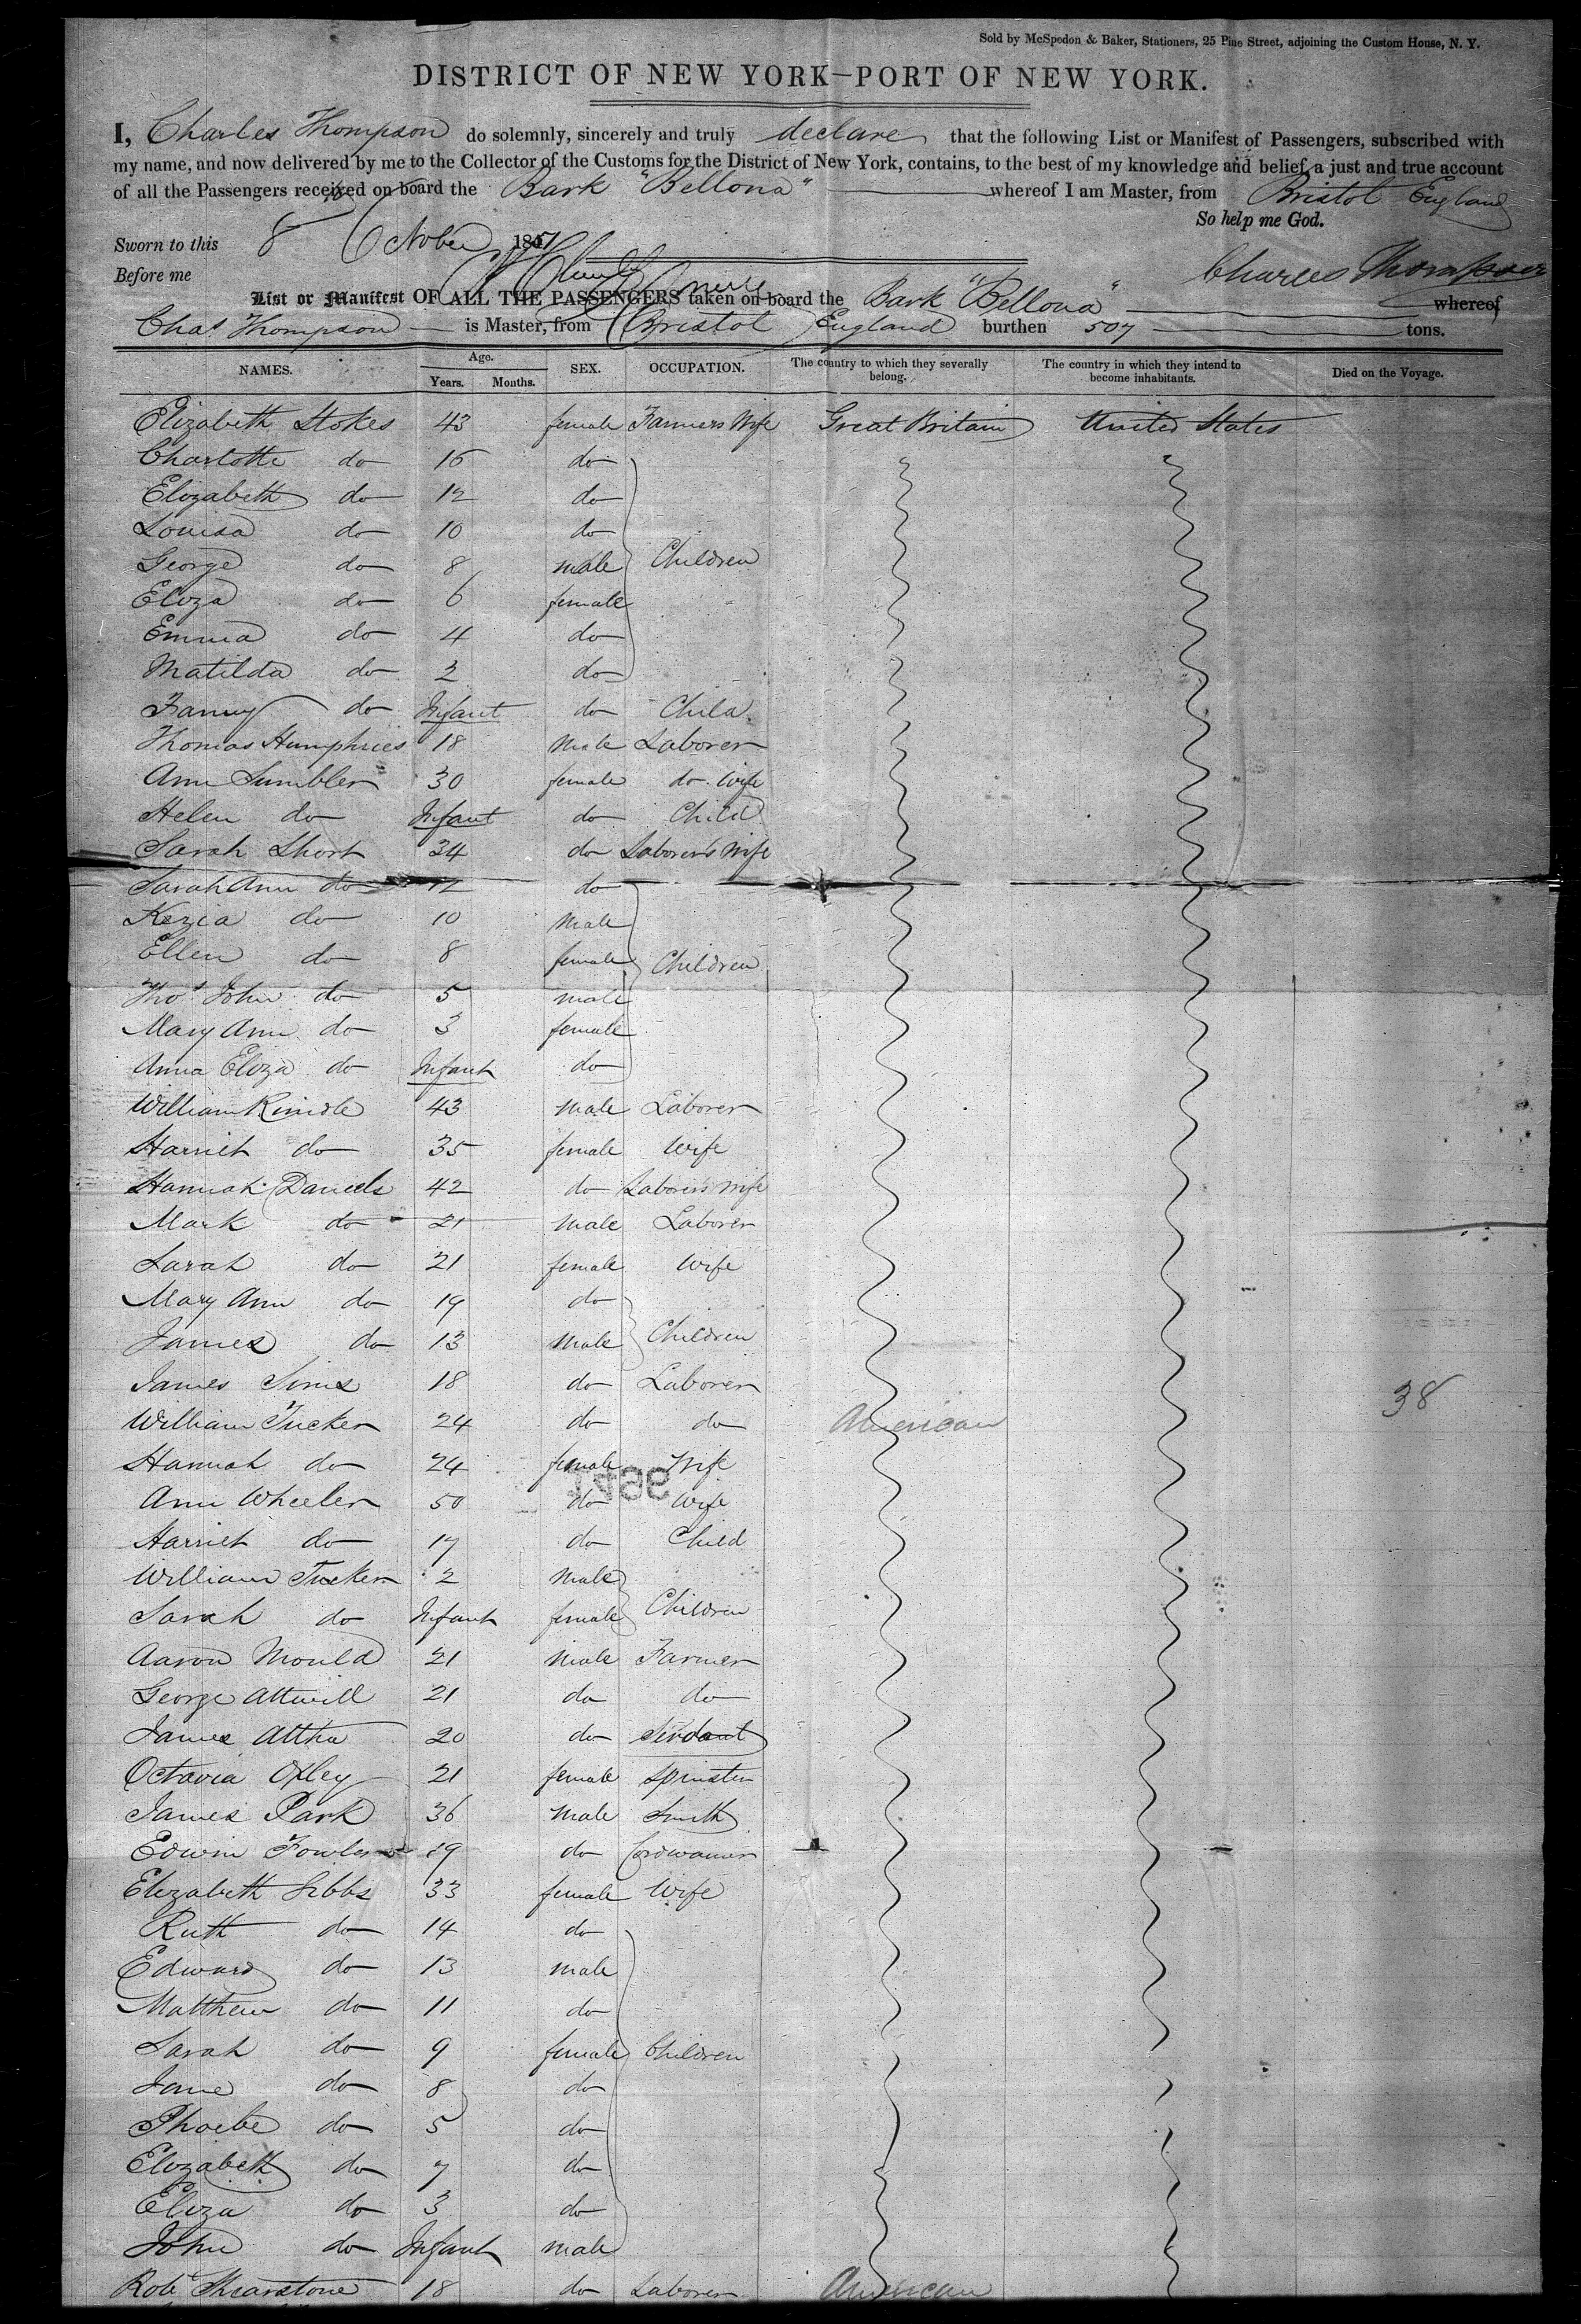 Sold by McSpedon & Baker, Stationers, 25 Pine Street, adjoining the Custom House, N. Y.
DISTRICT OF NEW YORK—PORT OF NEW YORK.
I, Charles Thompson do solemnly, sincerely and truly declare that the following List or Manifest of Passengers, subscribed with
my name, and now delivered by me to the Collector of the Customs for the District of New York, contains, to the best of my knowledge and belief, a just and true account
of all the Passengers received on board the Bark "Bellona" whereof I am Master, from Bristol England
So help me God.
Sworn to this 8 October 1851
Before me Charles Thompson
List or Manifest OF ALL THE PASSENGERS taken on board the Bark "Bellona" whereof
Chas Thompson is Master, from Bristol England burthen 507 tons.
NAMES. Age. Years. Months. SEX. OCCUPATION. The country to which they severally belong. The country in which they intend to become inhabitants. Died on the Voyage.
Elizabeth Stokes 43 female Farmers Wife Great Britain United States
Charlotte do 16 do
Elizabeth do 12 do
Louisa do 10 do
George do 8 male Children
Eliza do 6 female
Emma do 4 do
Matilda do 2 do
Fanny do Infant do Child
Thomas Humphries 18 Male Laborer
Ann Sumbler 30 female do Wife
Helen do Infant do Child
Sarah Short 34 do Laborer's Wife
Sarah Ann do 12 do
Kezia do 10 Male
Ellen do 8 female Children
Thos John do 5 male
Mary Ann do 3 female
Anna Eliza do Infant do
William 43 Male Laborer
Harriet do 35 female Wife
Hannah Daniels 42 do Laborers Wife
Mark do 21 Male Laborer
Sarah do 21 female Wife
Mary Ann do 19 do
James do 13 Male Children
James Sims 18 do Laborer
38
William Tucker 24 do do American
Hannah do 24 female Wife
Ann Wheeler 50 do Wife
Harriet do 17 do Child
William Tucker 2 Male
Sarah do Infant female Children
Aaron Mould 21 Male Farmer
George Attwill 21 do do
James 20 do Servant
Octavia Oxley 21 female Spinster
James Park 36 Male Smith
Edwin Fowler 19 do Cordwainer
Elizabeth Gibbs 33 female Wife
Ruth do 14 do
Edward do 13 male
Matthew do 11 do
Sarah do 9 female Children
Jane do 8 do
Phoebe do 5 do
Elizabeth do 7 do
Eliza do 3 do
John do Infant male
Robt 18 do Laborer American